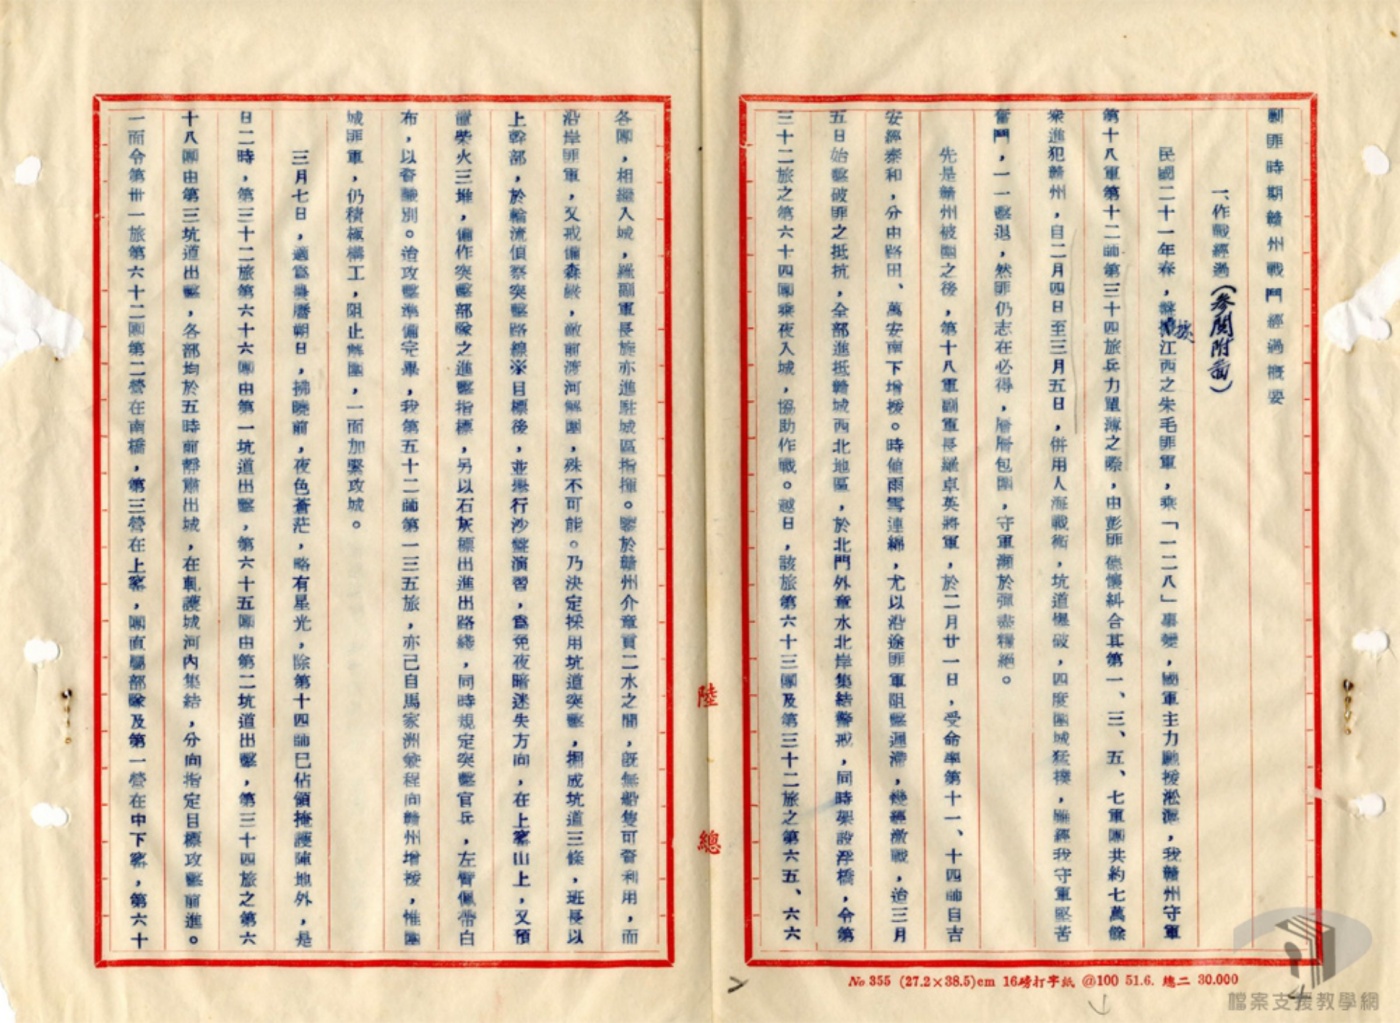 剿匪時期贛州戰鬥經過概要
一、作戰經過(參閱附圖)
民國二十一年春，盤據江西之朱毛匪軍，乘「一二八」事變，國軍主力馳援淞滬，我贛州守軍
第十八軍第十二師第三十四旅兵力單薄之際，由彭匪德懷糾合其第一、三、五、七軍團共約七萬餘
衆進犯贛州，自二月四日至三月五日，併用人海戰術，坑道爆破，四度圍城猛撲，雖經我守軍堅苦
奮鬥，一一擊退，然匪仍志在必得，層層包圍，守軍瀕於彈盡糧絕。
先是贛州被圍之後，第十八軍副軍長羅卓英將軍，於二月廿一日，受命率第十一、十四師自吉
安經泰和，分由路田、萬安南下增援。時値雨雪連綿，尤以沿途匪軍阻擊遲滯，幾經激戰，迨三月
五日始擊破匪之抵抗，全部進抵贛城西北地區，於北門外章水北岸集結警戒，同時架設浮橋，令第
三十二旅之第六十四團乘夜入城，協助作戰。越日，該旅第六十三團及第三十二旅之第六五、六六
各團，相繼入城，羅副軍長旋亦進駐城區指揮。鑒於贛州介章貢二水之間，旣無船隻可資利用，而
沿岸匪軍，又戒備森嚴，敵前渡河解圍，殊不可能。乃決定採用坑道突擊，掘成坑道三條，班長以
上幹部，於輪流偵察突擊路線曁目標後，並舉行沙盤演習，爲免夜暗迷失方向，在上寨山上，又預
置柴火三堆，備作突擊部隊之進擊指標，另以石灰標出進出路綫，同時規定突擊官兵，左臂佩帶白
布，以資識別。迨攻擊準備完畢，我第五十二師第一三五旅，亦已自馬家洲發程向贛州增援，惟圍
城匪軍，仍積極構工，阻止解圍，一面加緊攻城。
三月七日，適當農曆朔日，拂曉前，夜色蒼茫，略有星光，除第十四師已佔領掩護陣地外，是
日二時，第三十二旅第六十六團由第一坑道出擊，第六十五團由第二坑道出擊，第三十四旅之第六
十八團由第三坑道出擊，各部均於五時前靜肅出城，在乹護城河內集結，分向指定目標攻擊前進。
一面令第卅一旅第六十二團第二營在南橋，第三營在上寨，團直屬部隊及第一營在中下寨，第六十
陸
總
No 355 (27.2×38.5)cm 16磅打字紙 @100 51.6. 總二 30.000
檔案支援教學網